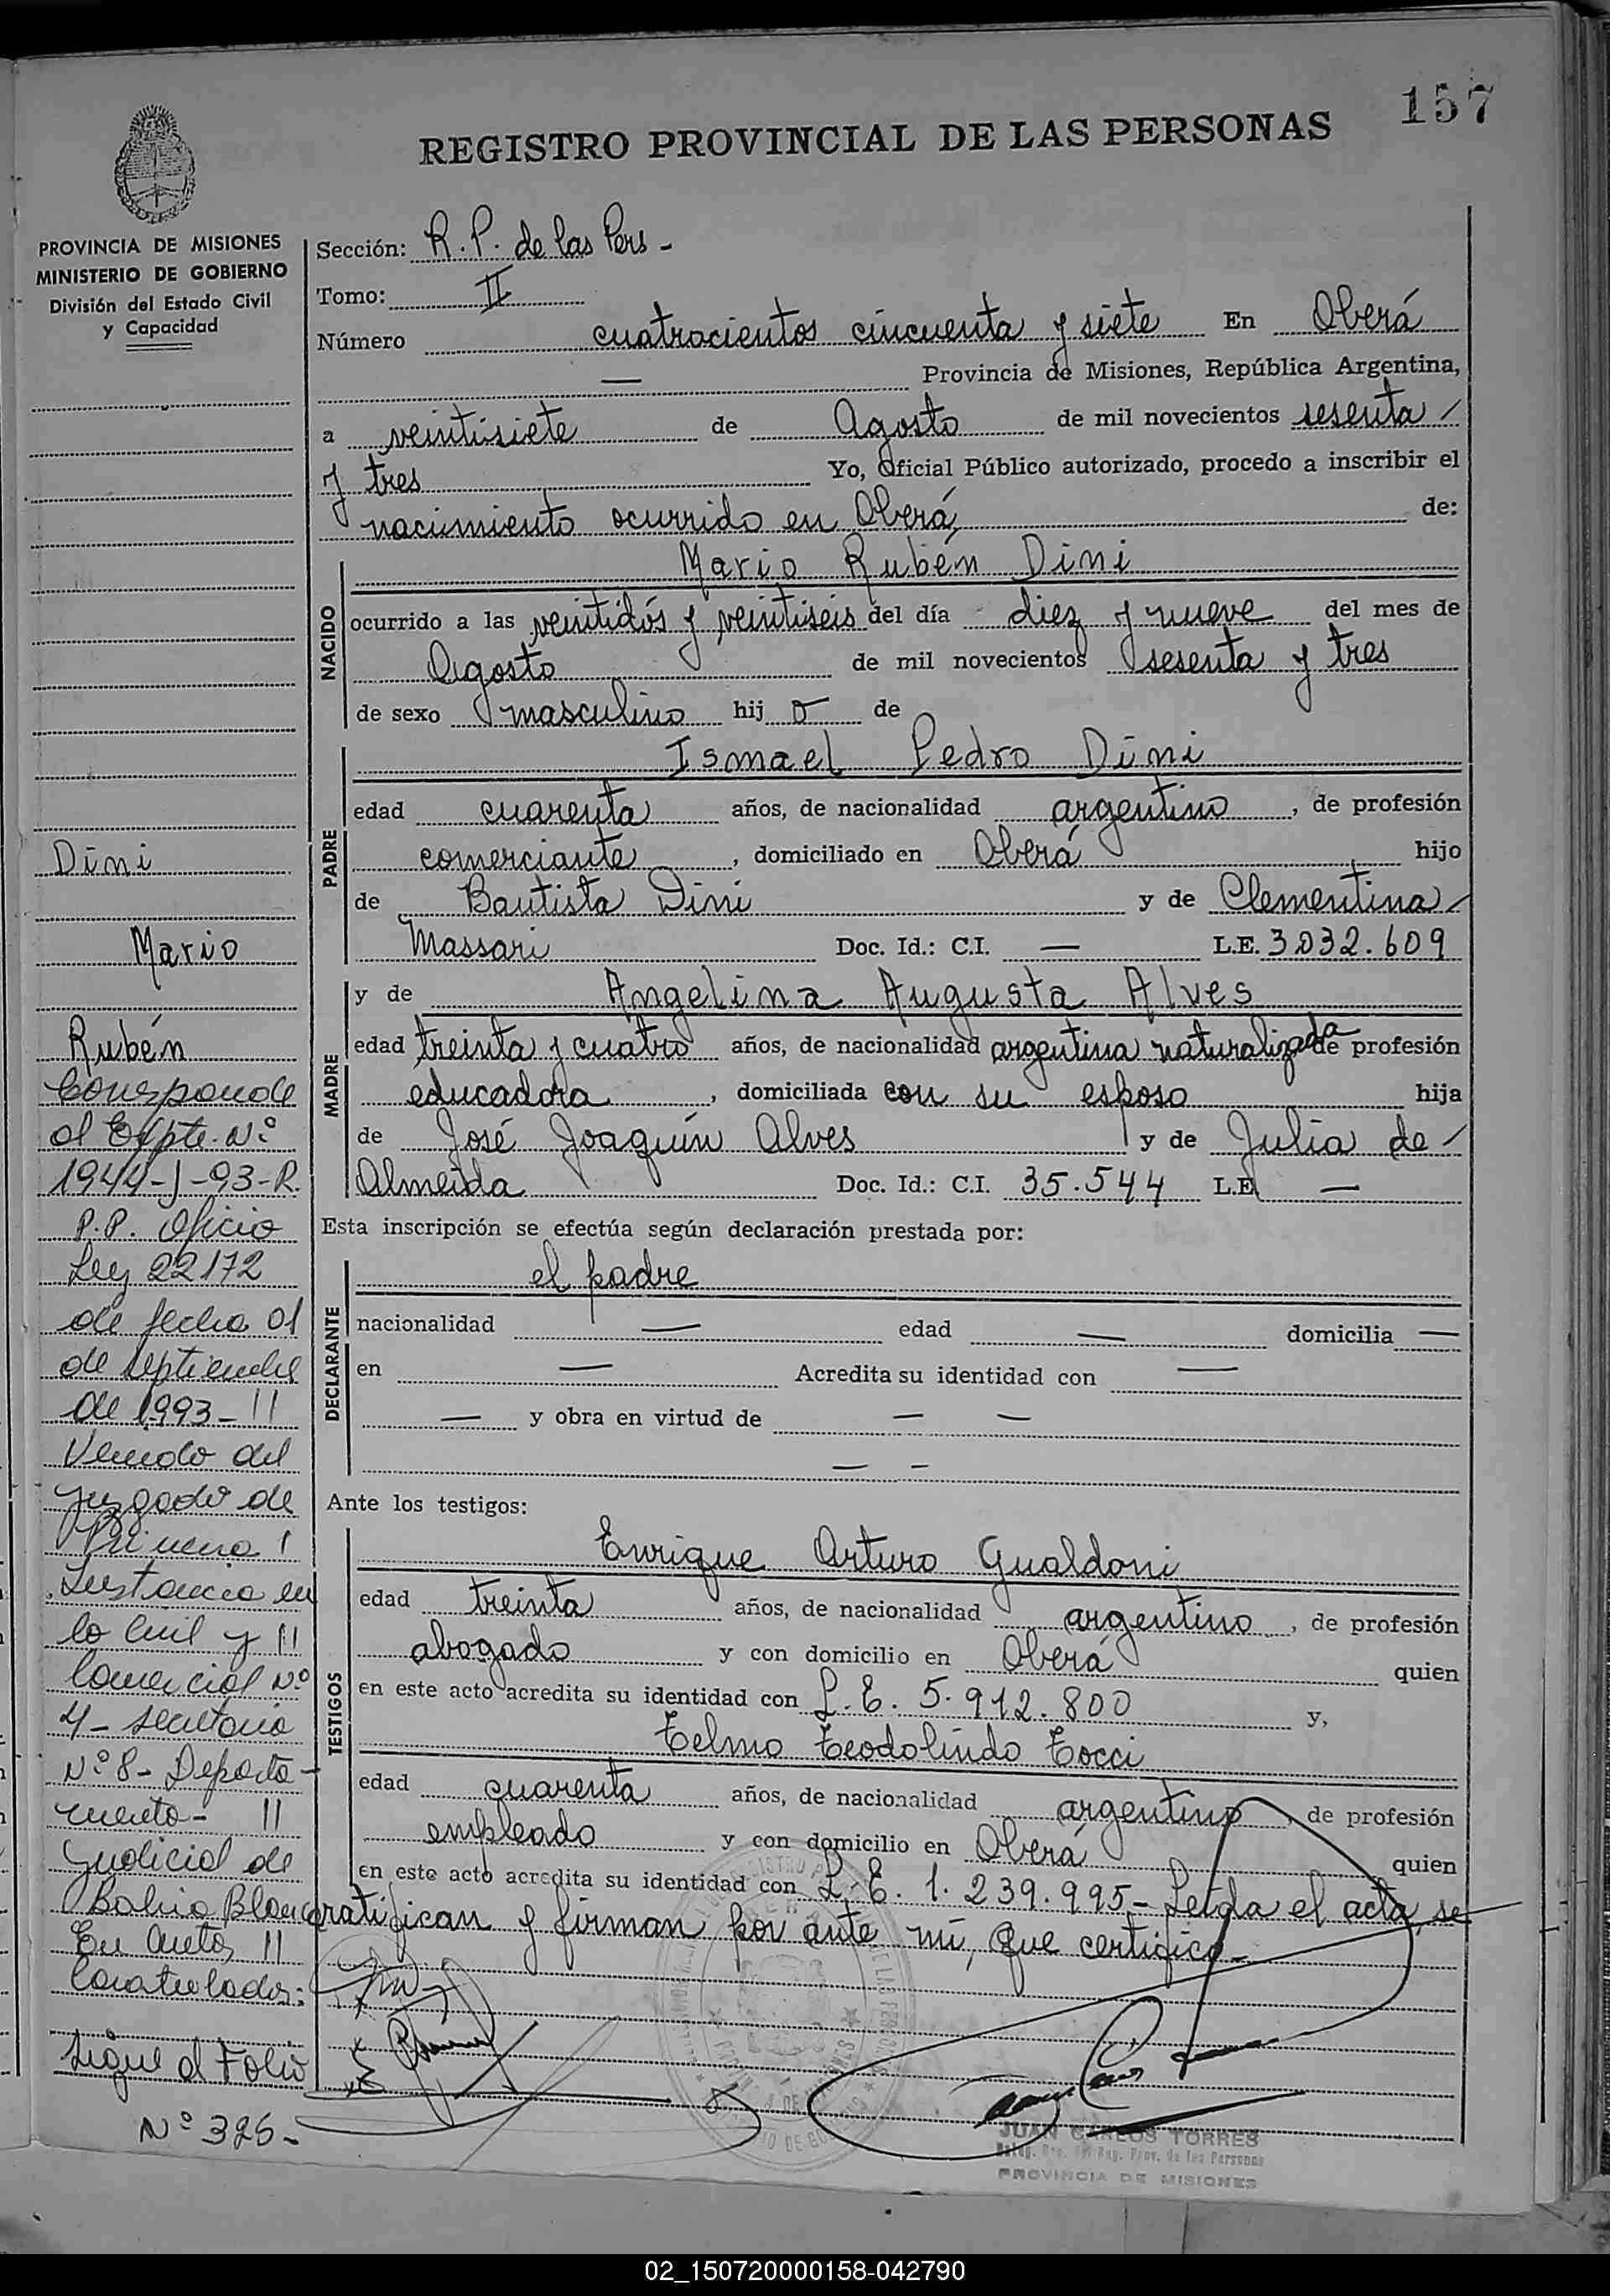 157
REGISTRO PROVINCIAL DE LAS PERSONAS
PROVINCIA DE MISIONES
MINISTERIO DE GOBIERNO
División del Estado Civil
y Capacidad
Sección: R.P. de las Pers -
Tomo: II
Número cuatrocientos cincuenta y siete En Oberá
— Provincia de Misiones, República Argentina,
a veintisiete de Agosto de mil novecientos sesenta /
y tres Yo, Oficial Público autorizado, procedo a inscribir el
nacimiento ocurrido en Oberá, de:
NACIDO
Mario Rubén Dini
ocurrido a las veintidós y veintiseis del día diez y nueve del mes de
Agosto de mil novecientos sesenta y tres
de sexo masculino hij o de
PADRE
Ismael Pedro Dini
edad cuarenta años, de nacionalidad argentino, de profesión
comerciante, domiciliado en Oberá hijo
de Bautista Dini y de Clementina /
Massari Doc. Id.: C.I. — L.E. 3.032.609
MADRE
y de Angelina Augusta Alves
edad treinta y cuatro años, de nacionalidad argentina naturalizada de profesión
educadora, domiciliada con su esposo hija
de José Joaquín Alves y de Julia de /
Almeida Doc. Id.: C.I. 35.544 L.E. —
Esta inscripción se efectúa según declaración prestada por:
DECLARANTE
el padre
nacionalidad — edad — domicilia —
en — Acredita su identidad con —
— y obra en virtud de — —
— —
Ante los testigos:
TESTIGOS
Enrique Arturo Gualdoni
edad treinta años, de nacionalidad argentino, de profesión
abogado y con domicilio en Oberá quien
en este acto acredita su identidad con L.E. 5.912.800 y,
Telmo Teodolindo Tocci
edad cuarenta años, de nacionalidad argentino, de profesión
empleado y con domicilio en Oberá quien
en este acto acredita su identidad con L.E. 1.239.995- Leída el acta, se
ratifican y firman por ante mí, que certifico-
JUAN CARLOS TORRES
Reg. Prov. de las Personas
PROVINCIA DE MISIONES
Dini
Mario
Rubén
Corresponde
al Expte. Nº
1944-J-93-R.
P.P. Oficio
Ley 22172
de fecha 01
de septiembre
de 1993- //
Venido del
Juzgado de
Primera /
Instancia en
lo Civil y //
Comercial Nº
4- Secretaria
Nº 8- Departa-
mento- //
Judicial de
Bahia Blanca
En Autos //
Caratulados:
Sigue al Folio
Nº 325-
02_150720000158-042790